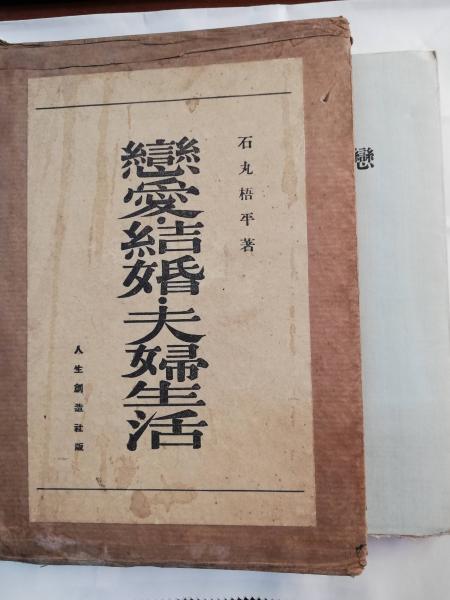 石丸梧平著
戀愛・結婚・夫婦生活
人生創造社版
戀